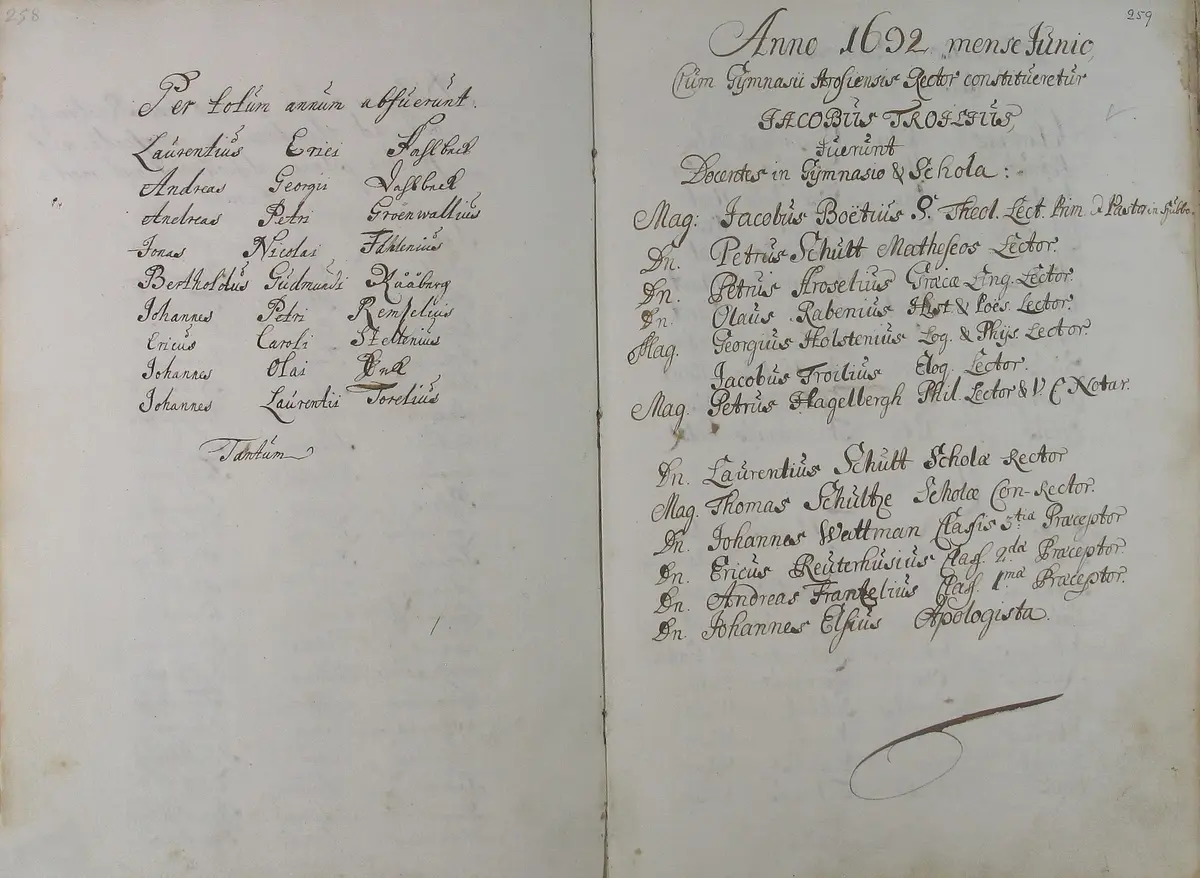 258
Per totum annum absuerunt.
Laurentius Erici Fahlbeck
Andreas Georgii Dahlbeck
Andreas Petri Groenwallius
Jonas Nicolai Fahlenius
Bertholdus Gudmundi Rååberg
Johannes Petri Remzelius
Ericus Caroli Stellenius
Johannes Olai
Johannes Laurentii Torelius
Tantum
259
Anno 1692 mense Junio,
Cum Gymnasii Arosiensis Rector constitueretur
JACOBUS TROILIUS,
Fuerunt
Docentes in Gymnasio & Schola:
Mag: Jacobus Boëtius S. Theol. Lect. Prim. & Pastor in
Dn. Petrus Schult Matheseos Lector.
Dn. Petrus Aroselius Græcæ Ling. Lector.
Dn. Olaus Rabenius Hist & Poës. Lector.
Mag. Georgius Holstenius Log. & Phys. Lector.
Jacobus Troilius Eloq. Lector.
Mag. Petrus Hagelbergh Phil. Lector & V. C. Notar.
Dn. Laurentius Schult Scholæ Rector
Mag. Thomas Schultze Scholæ Con-Rector.
Dn. Johannes Wattman Classis 3tiæ Præceptor
Dn. Ericus Reuterhusius Class. 2dæ Præceptor.
Dn. Andreas Frantzelius Class. 1mæ Præceptor.
Dn. Johannes Elfius Apologista.